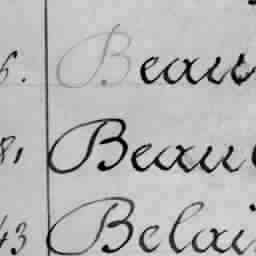 6. Beau
81 Beau
43 Belai